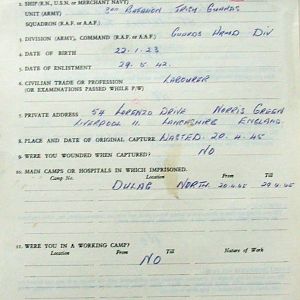 SHIP (R.N., U.S.N. or MERCHANT NAVY)
UNIT (ARMY) 2ND BATTALION IRISH GUARDS
SQUADRON (R.A.F. or A.A.F.)
3. DIVISION (ARMY), COMMAND (R.A.F. or A.A.F.) GUARDS ARMD DIV
4. DATE OF BIRTH 22.1.23
5. DATE OF ENLISTMENT 29.5.42.
6. CIVILIAN TRADE OR PROFESSION LABOURER
(OR EXAMINATIONS PASSED WHILE P/W)
7. PRIVATE ADDRESS 54 LORENZO DRIVE NORRIS GREEN
LIVERPOOL 11. LANCASHIRE ENGLAND.
8. PLACE AND DATE OF ORIGINAL CAPTURE 20.4.45
9. WERE YOU WOUNDED WHEN CAPTURED? NO
10. MAIN CAMPS OR HOSPITALS IN WHICH IMPRISONED.
Camp No. Location From Till
DULAG NORTH. 20.4.45 29.4.45
11. WERE YOU IN A WORKING CAMP?
Location From Till Nature of Work
NO